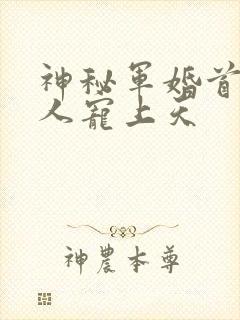 神秘军婚首
人宠上天
神農本尊